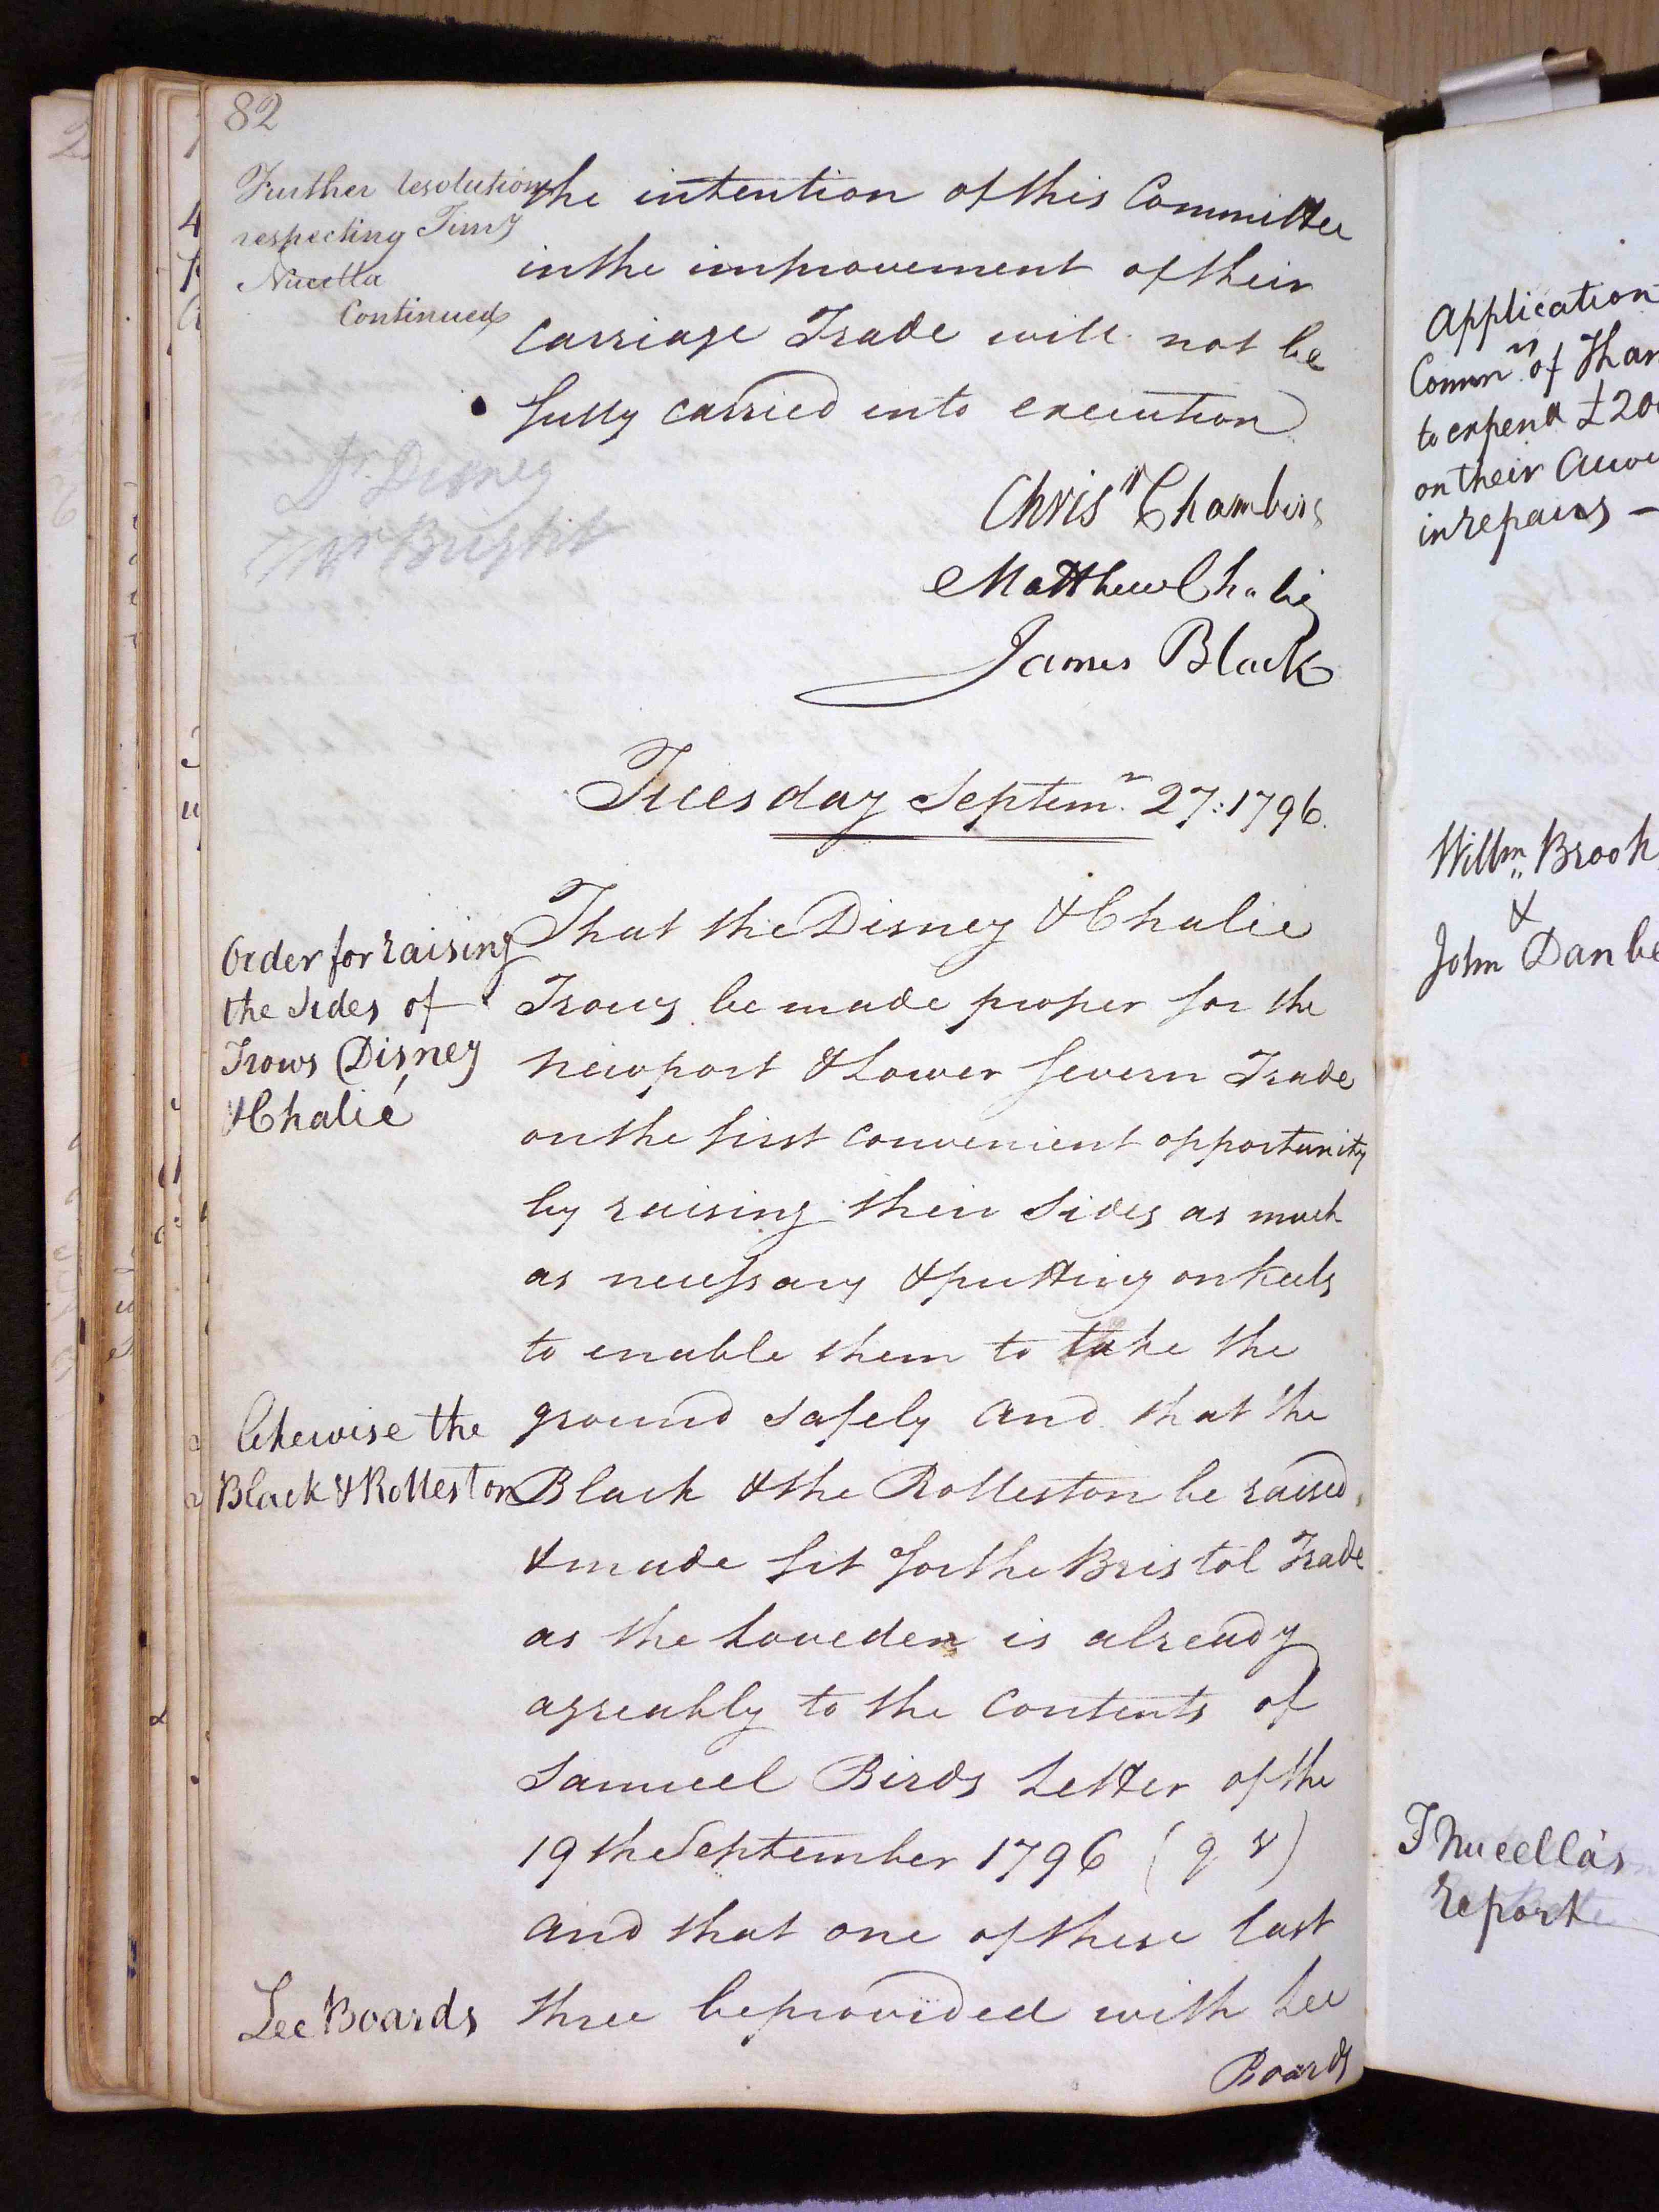 82
Further resolution
respecting Timy
Nucella
Continued
the intention of this Committee
in the improvement of their
Carriage Trade will not be
fully carried into execution
Dr. Disney
Mr Bright
Chrisr Chambers
Matthew Chalie
James Black
Tuesday Septemr. 27: 1796.
Order for raising
the Sides of
Trows Disney
& Chalié
That the Disney & Chalie
Trows be made proper for the
Newport & Lower Severn Trade
on the first convenient opportunity
by raising their Sides as much
as necessary & putting on keels
to enable them to take the
ground safely and that the
likewise the
Black & Rolleston
Black & the Rolleston be raised
& made fit for the Bristol Trade
as the Loveden is already
agreably to the Contents of
Samuel Birds Letter of the
19th September 1796 (q v)
and that one of these last
Lee Boards
three be provided with Lee
Boards
Application
Commrs of
to expend £20
on their
in repairs –
Willm. Brook
&
John
T Nucella's
report